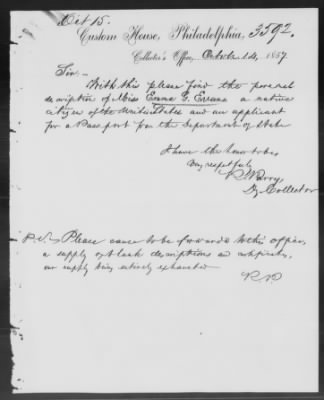 Oct 15.
Custom House, Philadelphia, 3592.
Collector's Office, October 14, 1857.
Sir,
With this please find the personal
description of Miss Emma G. Evans a native
citizen of the United States and an applicant
for a Passport from the Department of State
I have the honor to be
Very respectfully
Dy. Collector
P.S. Please cause to be forwarded to this office,
a supply of blank descriptions and certificates,
our supply being entirely exhausted